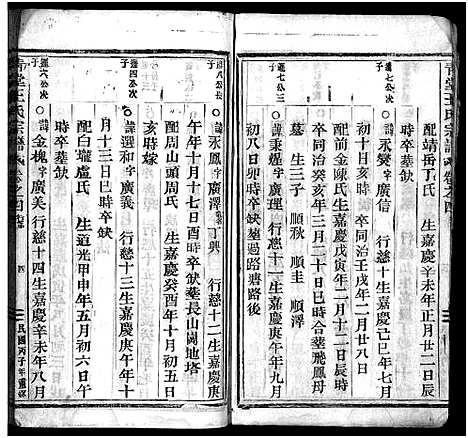 青堂王氏宗譜 卷之四
配靖缶丁氏 生嘉慶辛未年正月廿二日辰
時卒葬缺
蓮七公次子
○諱永燮字廣信 行慈十生嘉慶己巳年七月
初十日亥時卒同治壬戌年二月廿八日
配前金陳氏生嘉慶戊寅年二月十二日辰時
卒同治癸亥年三月十三日巳時合葬飛鳳母
墓 生三子 順秋 順圭 順澤
蓮七公三子
○諱秉煋字廣河 行慈二十一生嘉慶庚午年九月
初八日卯時卒缺葬過路塘路後
蓮八公長子
○諱永鳳字廣澤丁興 行慈十二生嘉慶庚
午年十月十七日酉時卒缺葬長山崗地塔
配周山頭周氏 生嘉慶癸酉年十月初五日
亥時嫁
蓮四公次子
○諱選和字廣義 行慈十三生嘉慶庚午年十
月十三日巳時卒缺
配白壠盧氏 生道光甲申年五月初六日午
時卒葬缺
蓮六公次子
○諱金槐字廣美 行慈十四生嘉慶辛未年八月
青堂王氏宗譜 卷之四
四
民國丙子年重修